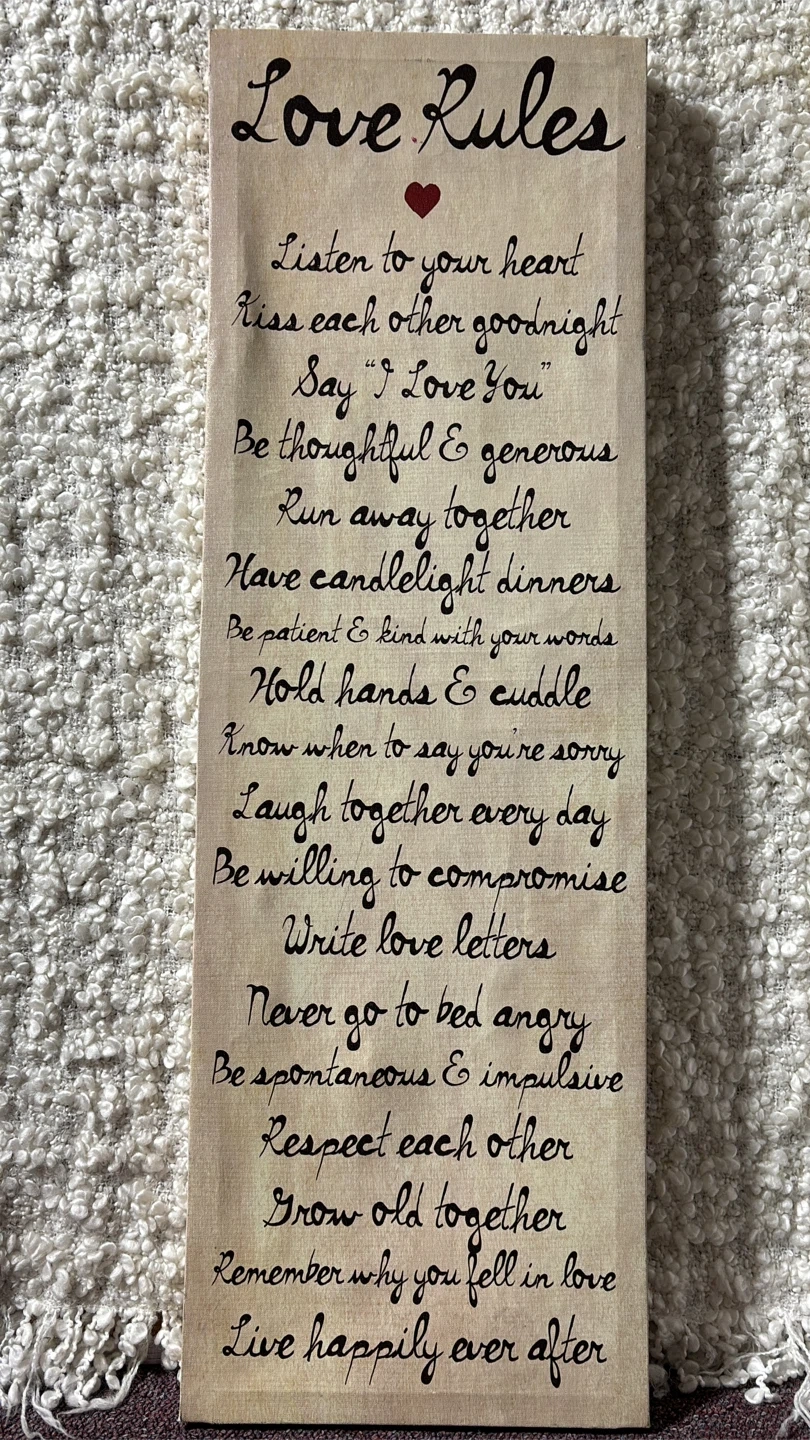 Love Rules
Listen to your heart
Kiss each other goodnight
Say “I Love You”
Be thoughtful & generous
Run away together
Have candlelight dinners
Be patient & kind with your words
Hold hands & cuddle
Know when to say you're sorry
Laugh together every day
Be willing to compromise
Write love letters
Never go to bed angry
Be spontaneous & impulsive
Respect each other
Grow old together
Remember why you fell in love
Live happily ever after